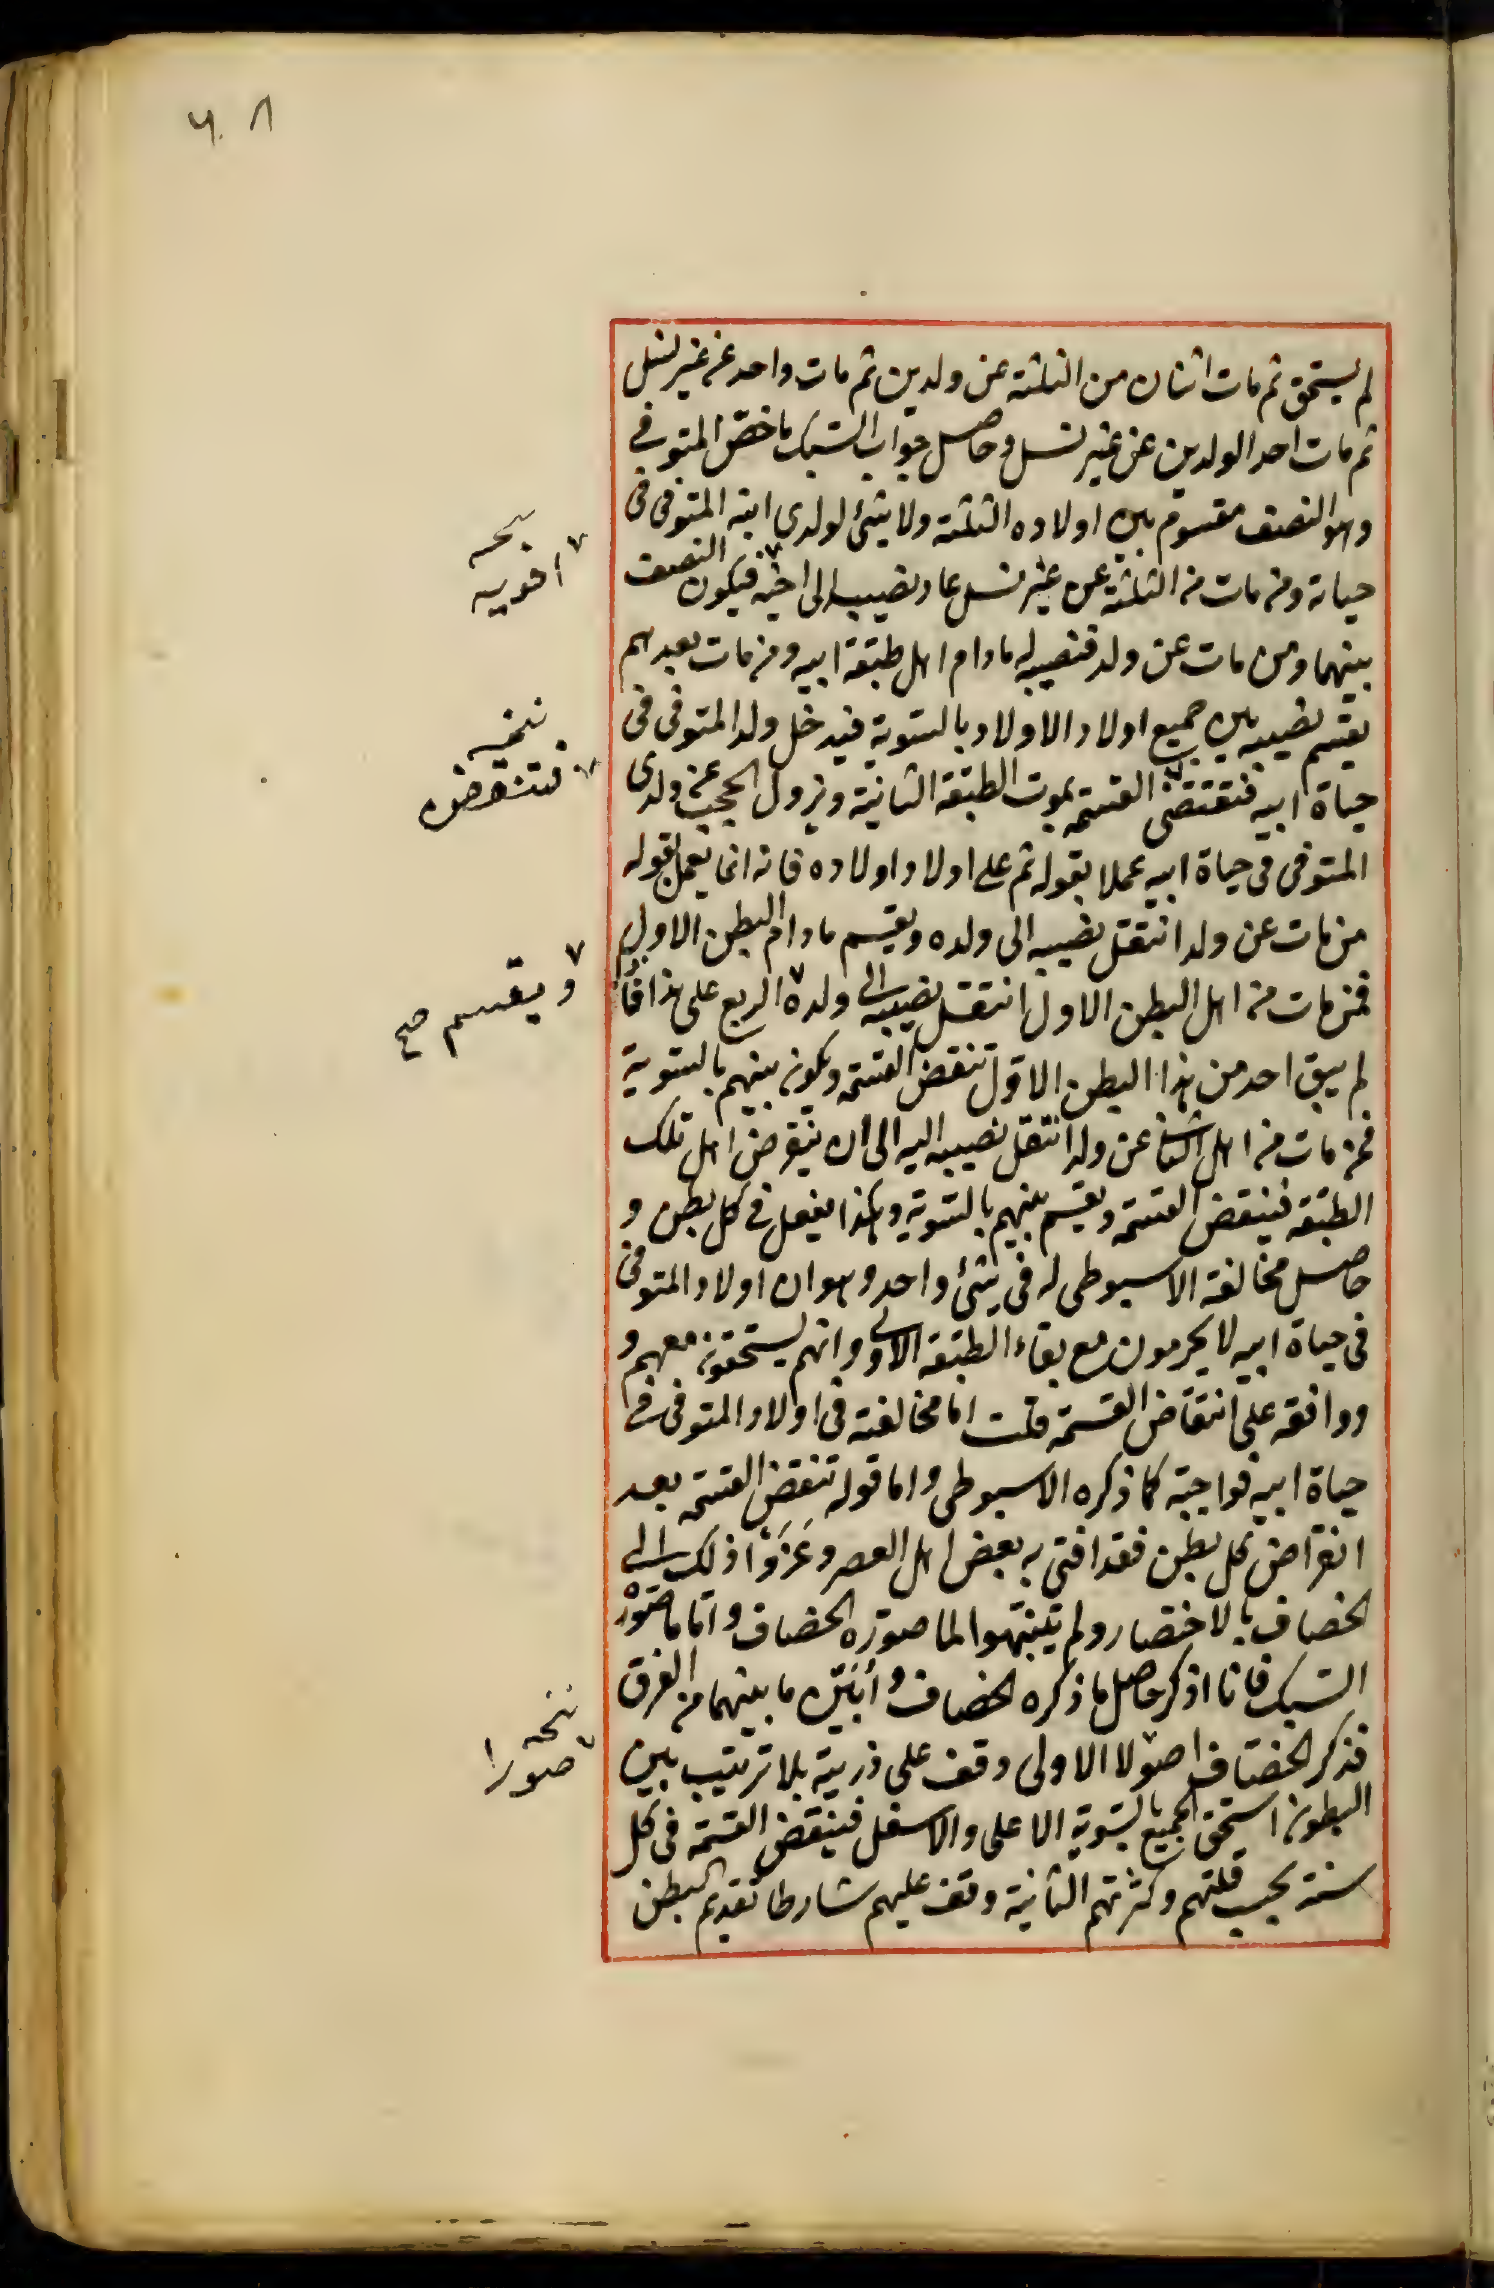 ٦٠٨
لم يستحق ثم مات اثنان من الثلثة عن ولدين ثم مات واحد عن غير نسل
ثم مات احد الولدين عن غير نسل وحاصل جواب السبكي ما خصّ المتوفى
وهو النصف مقسوم بين اولاده الثلثة ولا شئ لولدى ابنه المتوفى فى
حياته ومن مات من الثلثة عن غير نسل عاد نصيبه الى اخيه فيكون النصف
بينهما ومن مات عن ولد فنصيبه له مادام اهل طبقة ابيه ومن مات بعدهم
يقسم نصيبه بين جميع اولاد الاولاد بالسّوية فيدخل ولد المتوفى فى
حياة ابيه فتقتضى القسمة بموت الطبقة الثانية ويزول الحجب عن ولدى
المتوفى فى حياة ابيه عملا بقوله ثم على اولاد اولاده فانه انما يعمل بقوله
من مات عن ولد انتقل نصيبه الى ولده ويقسم مادام البطن الاول
فمن مات من اهل البطن الاول انتقل نصيبه الى ولده الربع على هذا فاذا
لم يبق احد من هذا البطن الاوّل تنقض القسمة ويكون بينهم بالسوية
فمن مات من اهل الثانى عن ولد انتقل نصيبه اليه الى ان ينقرض اهل تلك
الطبقة فينقض القسمة ويقسم بينهم بالسّوية وهكذا يفعل فى كل بطن و
حاصل مخالفة الاسيوطى له فى شئ واحد وهو ان اولاد المتوفى
فى حياة ابيه لا يحرمون مع بقاء الطبقة الاولى وانهم يستحقون معهم و
ووافقه على انتقاض القسمة قلت اما مخالفته فى اولاد المتوفى فى
حياة ابيه فواجبة كما ذكره الاسيوطى واما قوله تنقض القسمة بعد
انقراض كل بطن فقد افتى به بعض اهل العصر وعَزَوْا ذلك الى
الخصاف بالاختصار ولم يتنبّهوا لما صوّره الخصاف واما ما صوّره
السبكى فانا اذكر حاصل ما ذكره الخصاف وأبيّن ما بينهما من الفرق
فذكر الخصّاف اصولا الاولى وقف على ذرية بلا ترتيب بين
البطون استحق الجميع بالسّوية الاعلى والاسفل فينقض القسمة فى كل
سنة بحسب قلتهم وكثرتهم الثانية وقف عليهم شارطا تقديم البطن
نسخه
اخويه
نسخه
فتنقرض
ويقسم صح
نسخه
صورا